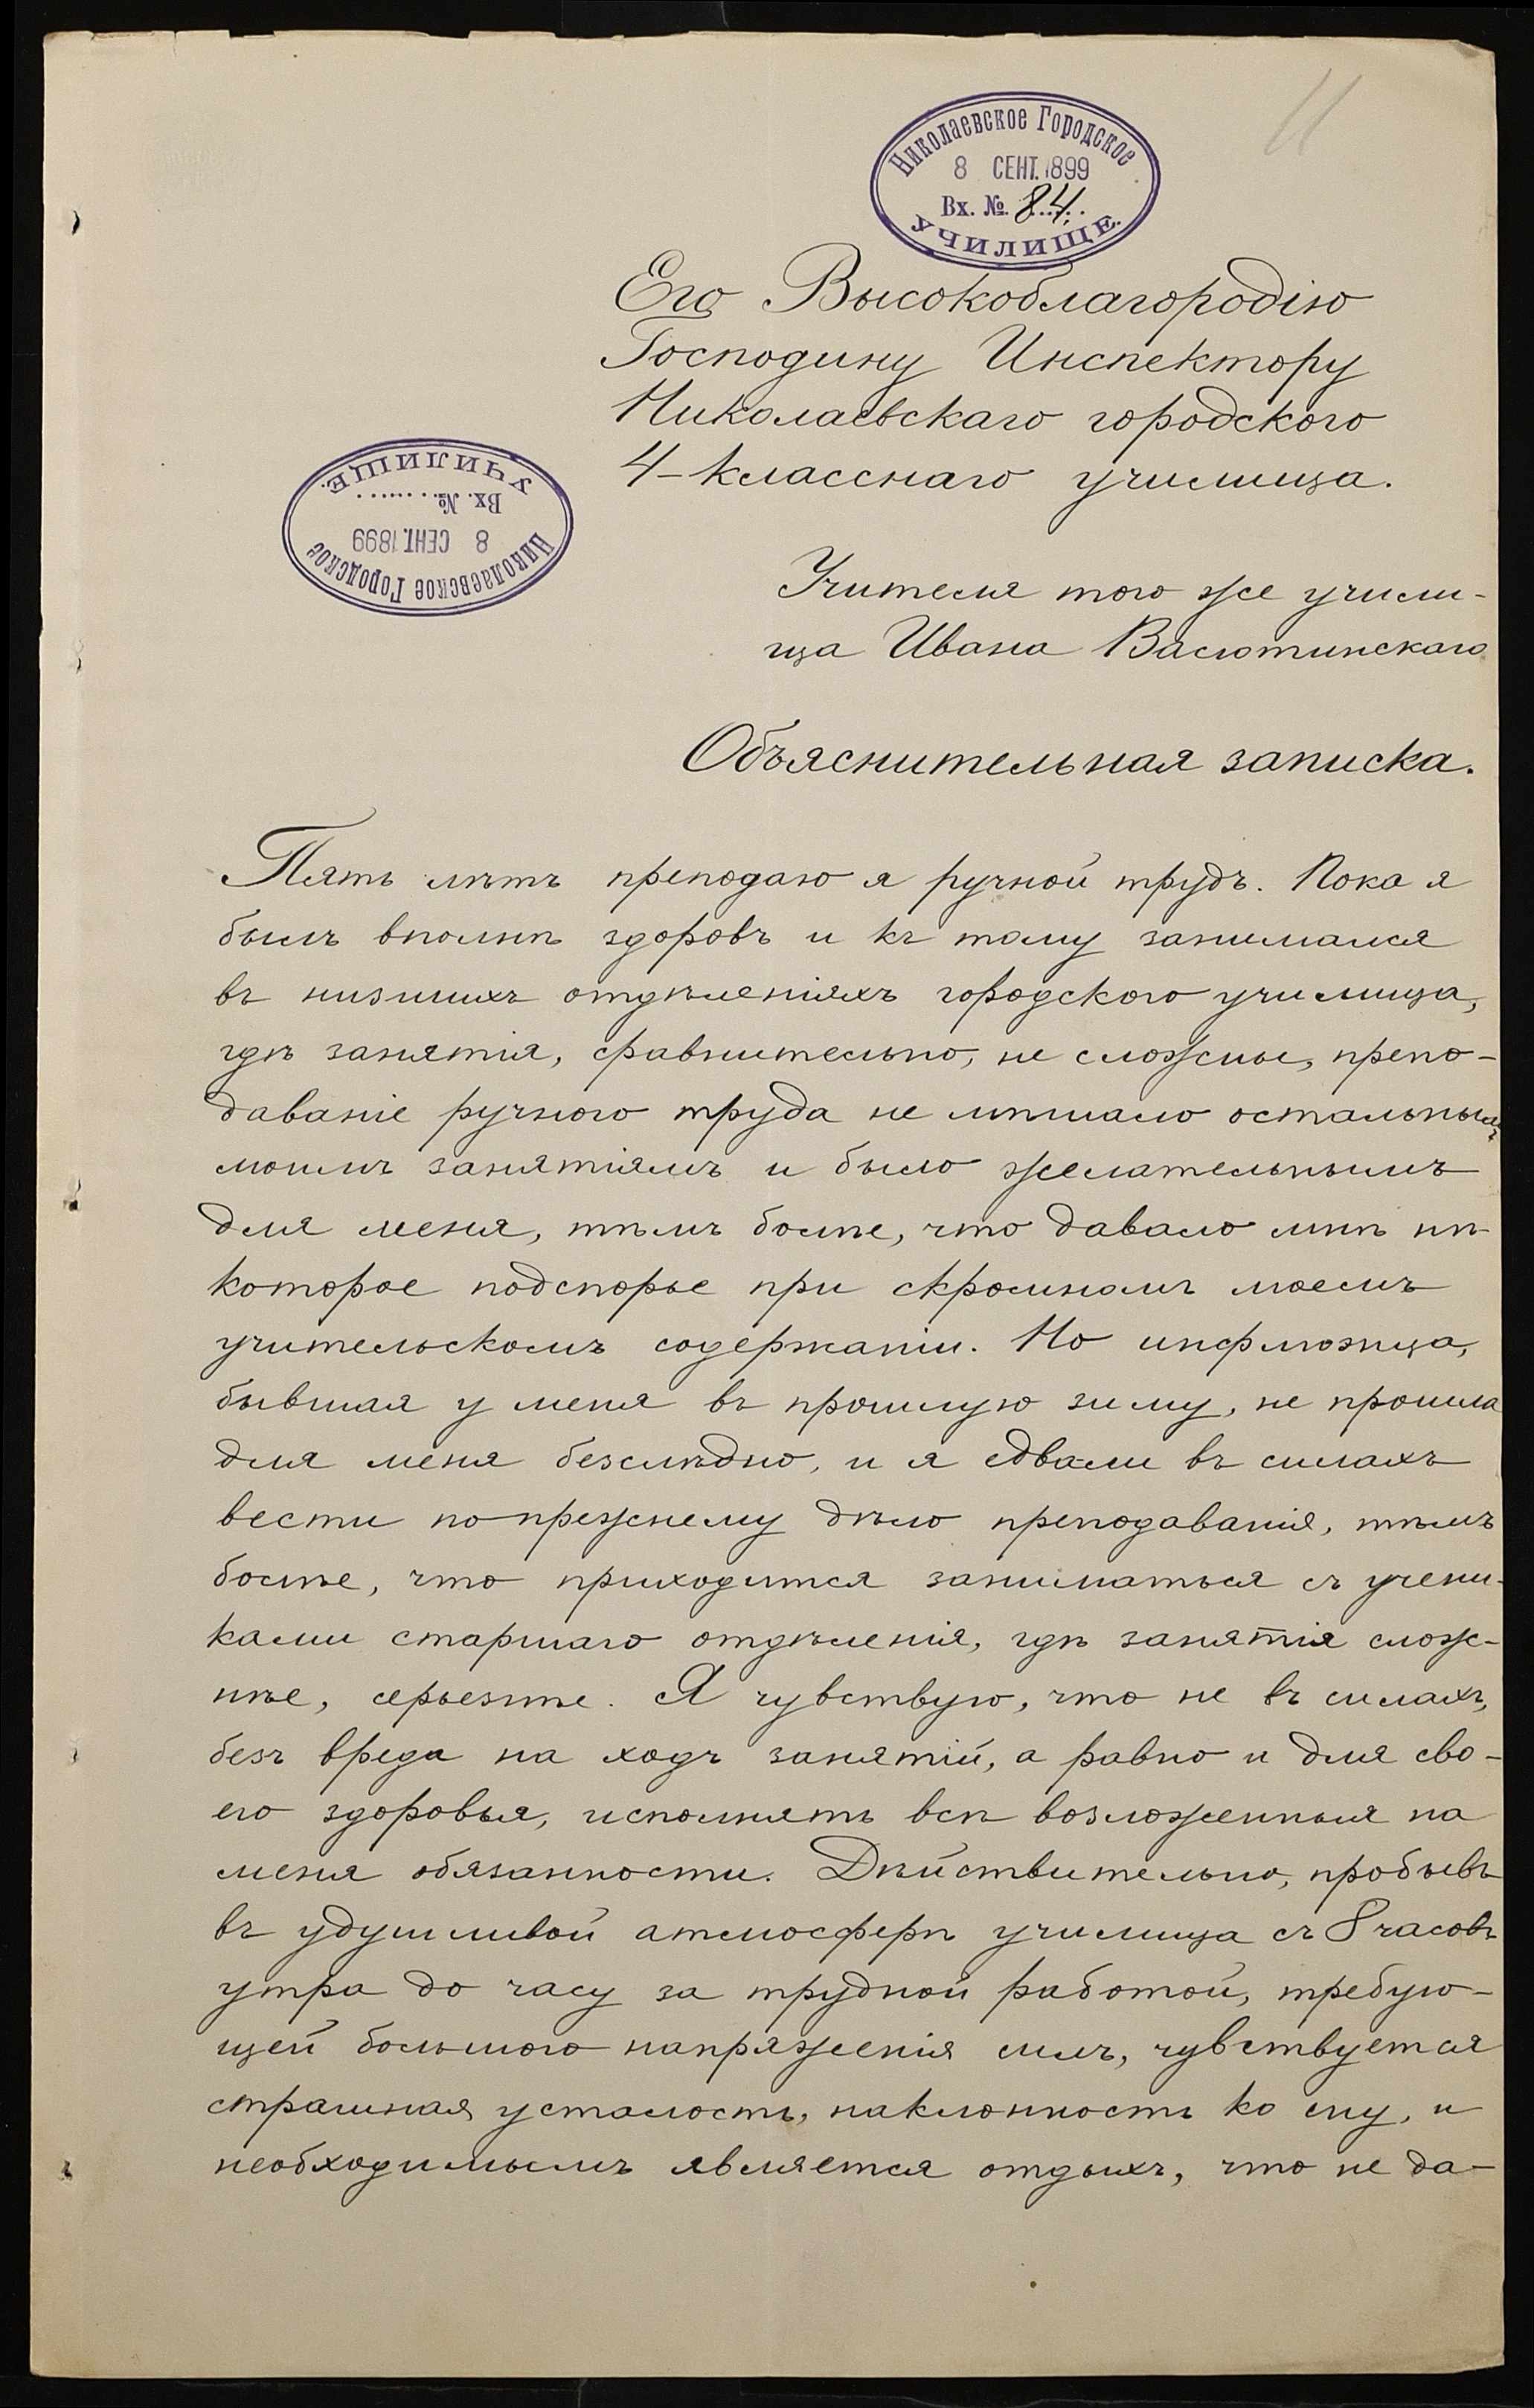 11
Николаевское Городское
8 СЕНТ. 1899
Вх. №. 84.
УЧИЛИЩЕ.
Его Высокоблагородію
Господину Инспектору
Николаевскаго городского
4-класснаго училища.
Николаевское Городское
8 СЕНТ. 1899
Вх. №. ........
УЧИЛИЩЕ.
Учителя того же учили-
ща Ивана Васютинскаго
Объяснительная записка.
Пять лѣтъ преподаю я ручной трудъ. Пока я
былъ вполнѣ здоровъ и къ тому занимался
въ низшихъ отдѣленіяхъ городского училища,
гдѣ занятія, сравнительно, не сложны, препо-
даваніе ручного труда не мѣшало остальнымъ
моимъ занятіямъ и было желательнымъ
для меня, тѣмъ болѣе, что давало мнѣ нѣ-
которое подспорье при скромномъ моемъ
учительскомъ содержаніи. Но инфлюэнца,
бывшая у меня въ прошлую зиму, не прошла
для меня безслѣдно, и я едвали въ силахъ
вести по прежнему дѣло преподаванія, тѣмъ
болѣе, что приходится заниматься съ учени-
ками старшаго отдѣленія, гдѣ занятія слож-
нѣе, серьезнѣе. Я чувствую, что не въ силахъ,
безъ вреда на ходъ занятій, а равно и для сво-
его здоровья, исполнять всѣ возложенныя на
меня обязанности. Дѣйствительно, пробывъ
въ удушливой атмосферѣ училища съ 8 часовъ
утра до часу за трудной работой, требую-
щей большого напряженія силъ, чувствуется
страшная усталость, наклонность ко сну, и
необходимымъ является отдыхъ, что не да-